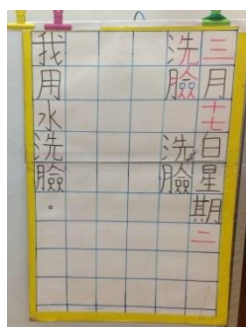 三月十七白星期二
洗臉 洗臉
我用水洗臉。